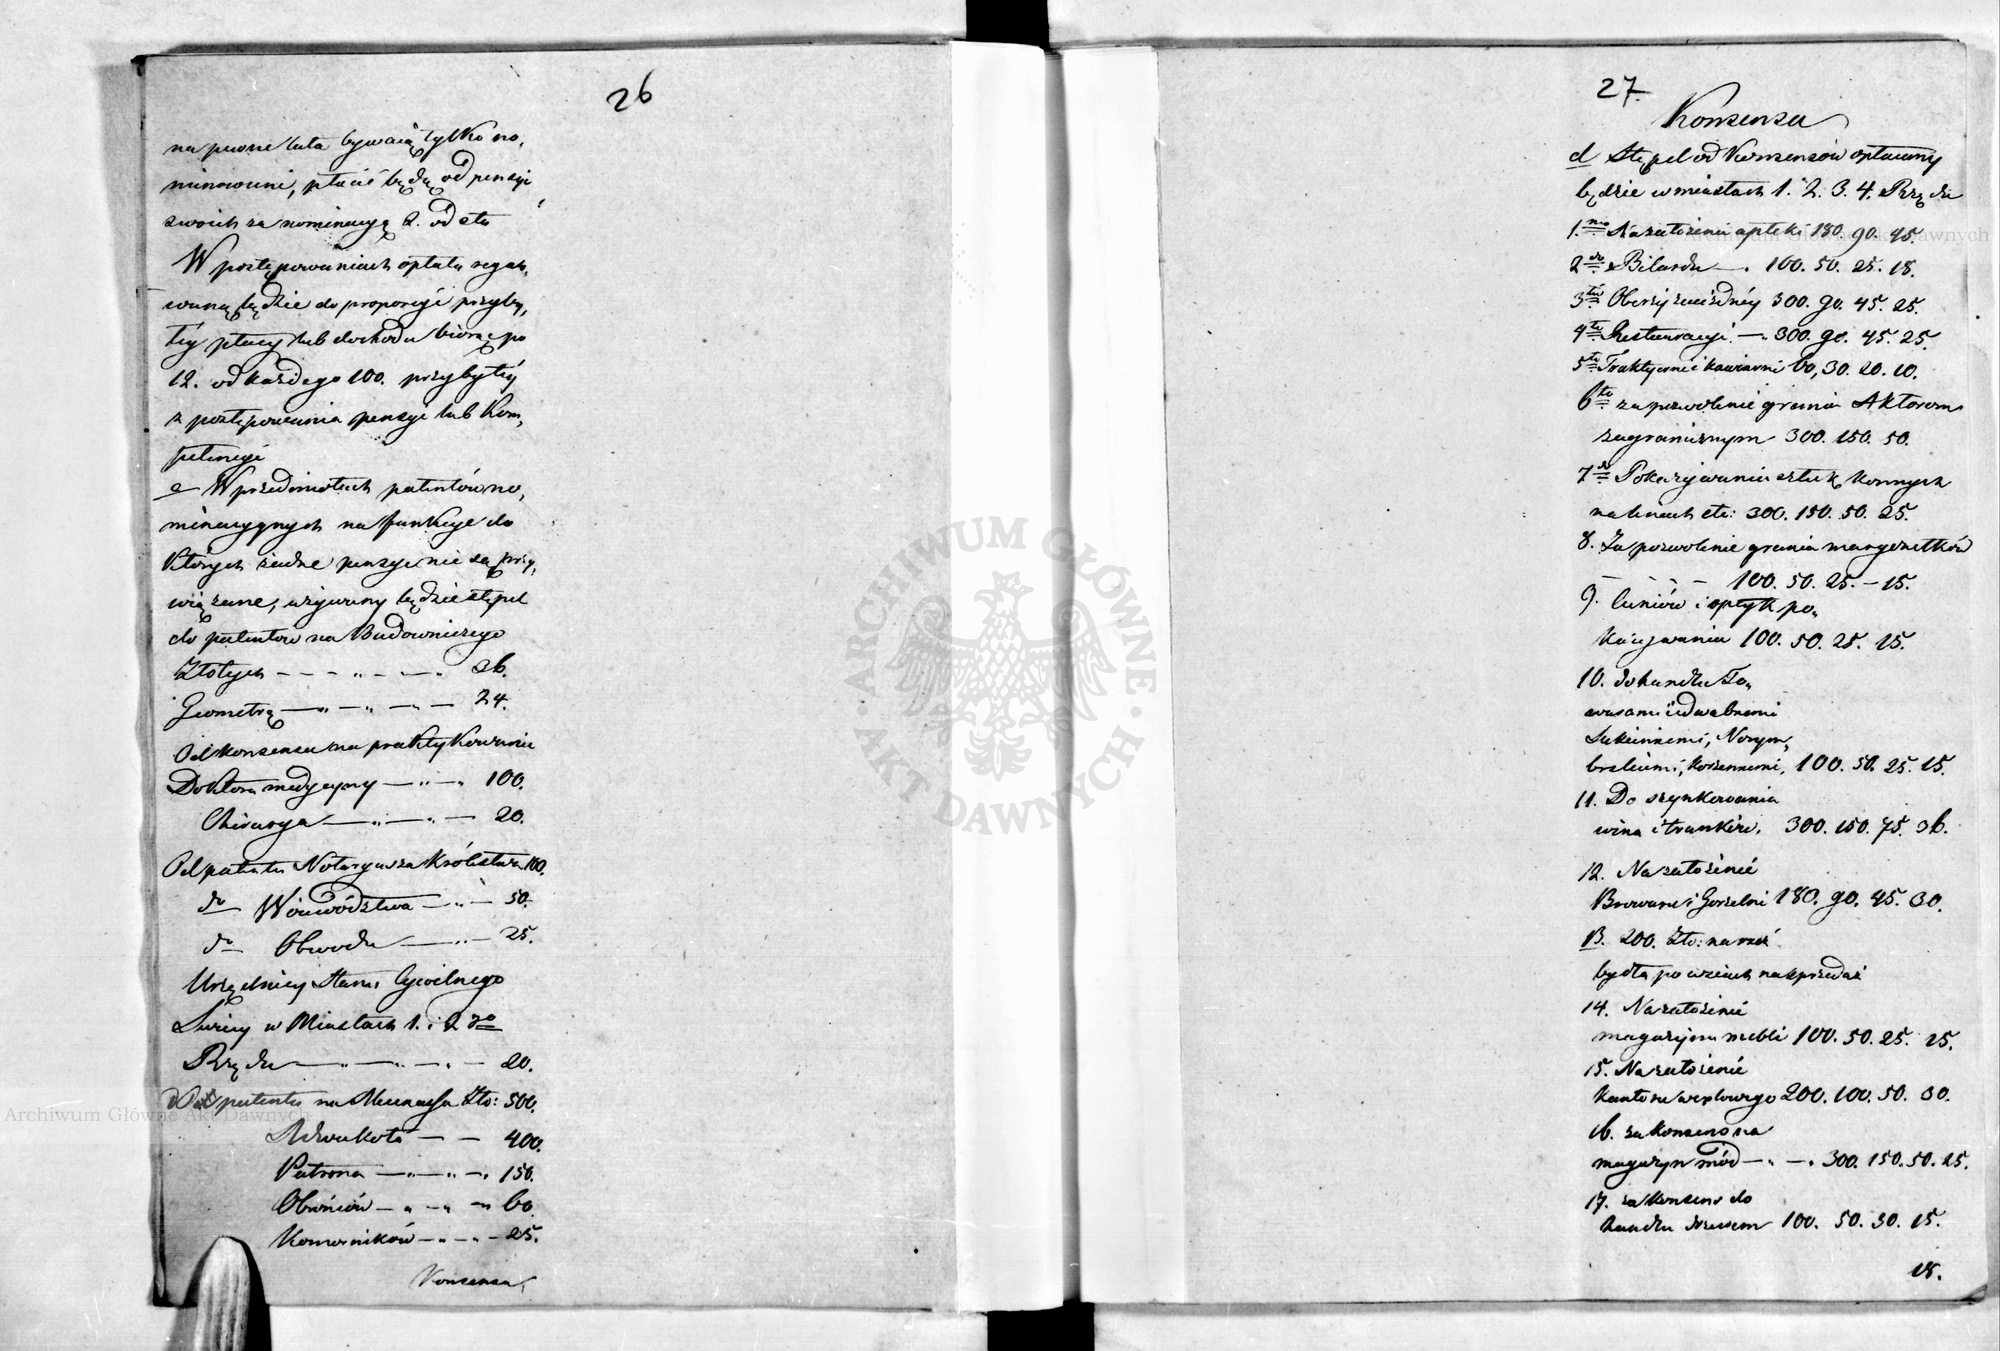 26
na pewne lata bywaią tylko no,
minowani, płacić będą od pensyi
swoich za nominacyą 2. od sta
W postępowaniach opłata regu,
waną będzie do proporcyi przyby,
téy płacy lub dochodu biorąc po
12. od każdego 100. przybyłéy
z postępowania pensyi lub Kom,
petencyi
e W przedmiotach patentów no,
minacyynych na funkcye do
których żadne pensye nie są przy,
wiązane, używany będzie stępel
do patentów na Budowniczego
Złotych - - - " - - - 36.
Geometrę — " — " — " — 24.
Od konsensu na praktykowanie
Doktora medycyny — " — " 100.
Chirurga — " — " — 20.
Od patentu Notaryusza Królestwa 100.
do Woiewództwa — " — 50.
do Obwodu — " — 25.
Urzędnicy Stanu Cywilnego
Świeccy w Miastach 1. i 2 go
Rzędu — " — " — 20.
patentu na Mecenassa Zło: 500.
Adwokata — — 400.
Patrona — " — " — " 150.
Obrońców — " — " — 60.
Komorników — " — " — 25.
Konsensa,
27.
Konsensa
d Stępel od Konsensów opłacany
będzie w miastach 1. 2. 3. 4. Rzędu
1. mo Na założenie apteki 180. 90. 45.
2 do Bilardu — . 100. 50. 25. 15.
3 tio Oberży zaiezdnéy 300. 90. 45. 25.
4 to Restauracyi — " 300. 90. 45. 25.
5 to Traktyerni i kawiarni 60, 30. 20. 10.
6 to za pozwolenie grania Aktorom
zagranicznym 300. 150. 50.
7 do Pokazywania sztuk konnych
na linach etc: 300. 150. 50. 25.
8. Za pozwolenie grania maryonetków
— — — — 100. 50. 25. — 15.
9. cieniów i optyk po,
kazywania 100. 50. 25. 15.
10. do handlu To,
warami iedwabnemi
Sukiennemi, Norym,
berskiemi, korzennemi, 100. 50. 25. 15.
11. Do szynkowania
wina i trunków. 300. 150. 75. 36.
12. Na założenie
Browaru i Gorzelni 180. 90. 45. 30.
13. 200. Zło: na rzeź
bydła po wsiach na sprzedaż
14. Na założenie
magazynu mebli 100. 50. 25. 25.
15. Na założenie
kantoru wexlowego 200. 100. 50. 30.
16. za konsens na
magazyn mód — " — " 300. 150. 50. 25.
17. za konsens do
handlu drzewem 100. 50. 30. 15.
18.
ARCHIWUM GŁÓWNE
· AKT DAWNYCH ·
Archiwum Główne Akt Dawnych
Archiwum Główne Akt Dawnych